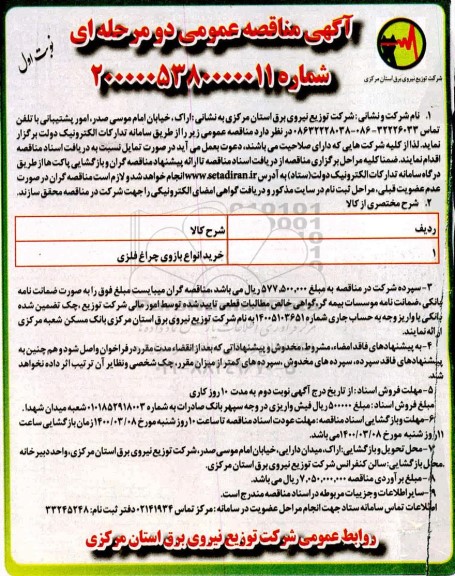 آگهی مناقصه عمومی دو مرحله ای
شماره ۲۰۰۰۰۰۵۳۸۰۰۰۰۰۱۱
نوبت اول
شرکت توزیع نیروی برق استان مرکزی
۱. نام شرکت و نشانی: شرکت توزیع نیروی برق استان مرکزی به نشانی: اراک، خیابان امام موسی صدر، امور پشتیبانی با تلفن
تماس ۳۲۲۲۶۰۳۳-۰۸۶ ۰۸۶۳۲۲۲۸۰۳۸ در نظر دارد مناقصه عمومی زیر را از طریق سامانه تدارکات الکترونیک دولت برگزار
نماید. لذا از کلیه شرکت هایی که دارای صلاحیت می باشند، دعوت بعمل می آید در صورت تمایل نسبت به دریافت اسناد مناقصه
اقدام نمایند. ضمنا کلیه مراحل برگزاری مناقصه از دریافت اسناد مناقصه تا ارائه پیشنهاد مناقصه گران و بازگشایی پاکت ها از طریق
درگاه سامانه تدارکات الکترونیک دولت(ستاد) به آدرس www.setadiran.ir انجام خواهد شد و لازم است مناقصه گران در صورت
عدم عضویت قبلی، مراحل ثبت نام در سایت مذکور و دریافت گواهی امضای الکترونیکی را جهت شرکت در مناقصه محقق سازند.
۲. شرح مختصری از کالا
ردیف شرح کالا
۱ خرید انواع بازوی چراغ فلزی
۳- سپرده شرکت در مناقصه به مبلغ ۵۷۷,۵۰۰,۰۰۰ ریال می باشد. مناقصه گران میبایست مبلغ فوق را به صورت ضمانت نامه
بانکی، ضمانت نامه موسسات بیمه گر، گواهی خالص مطالبات قطعی تایید شده توسط امور مالی شرکت توزیع، چک تضمین شده
بانکی یا واریز وجه به حساب جاری شماره ۱۴۰۰۵۱۰۳۶۵۱ به نام شرکت توزیع نیروی برق استان مرکزی بانک مسکن شعبه مرکزی
ارائه نمایند.
۴- به پیشنهادهای فاقد امضاء، مشروط، مخدوش و پیشنهاداتی که بعد از انقضاء مدت مقرر در فراخوان واصل شود و هم چنین به
پیشنهادهای فاقد سپرده، سپرده های مخدوش، سپرده های کمتر از میزان مقرر، چک شخصی و نظایر آن ترتیب اثر داده نخواهد
شد.
۵- مهلت فروش اسناد: از تاریخ درج آگهی نوبت دوم به مدت ۱۰ روز کاری
مبلغ فروش اسناد: مبلغ ۵۰۰۰۰۰ ریال فیش واریزی در وجه سپهر بانک صادرات به شماره ۰۱۰۱۸۵۲۹۱۸۰۰۳ شعبه میدان شهدا.
۶- مهلت و بازگشایی اسناد مناقصه: مهلت عودت اسناد مناقصه تا ساعت ۱۰ روز شنبه مورخ ۱۴۰۰/۰۳/۰۸ زمان بازگشایی ساعت
۱۱ روز شنبه مورخ ۱۴۰۰/۰۳/۰۸ می باشد.
۷- محل تحویل و بازگشایی: اراک، میدان دارایی، خیابان امام موسی صدر، شرکت توزیع نیروی برق استان مرکزی، واحد دبیرخانه
محل بازگشایی: سالن کنفرانس شرکت توزیع نیروی برق استان مرکزی.
۸- مبلغ برآوردی مناقصه ۷,۰۵۰,۰۰۰,۰۰۰ ریال می باشد.
۹- سایر اطلاعات و جزییات مربوطه در اسناد مناقصه مندرج است.
اطلاعات تماس سامانه ستاد جهت انجام مراحل عضویت در سامانه: مرکز تماس ۰۲۱۴۱۹۳۴ دفتر ثبت نام: ۳۳۲۴۵۲۴۸
روابط عمومی شرکت توزیع نیروی برق استان مرکزی